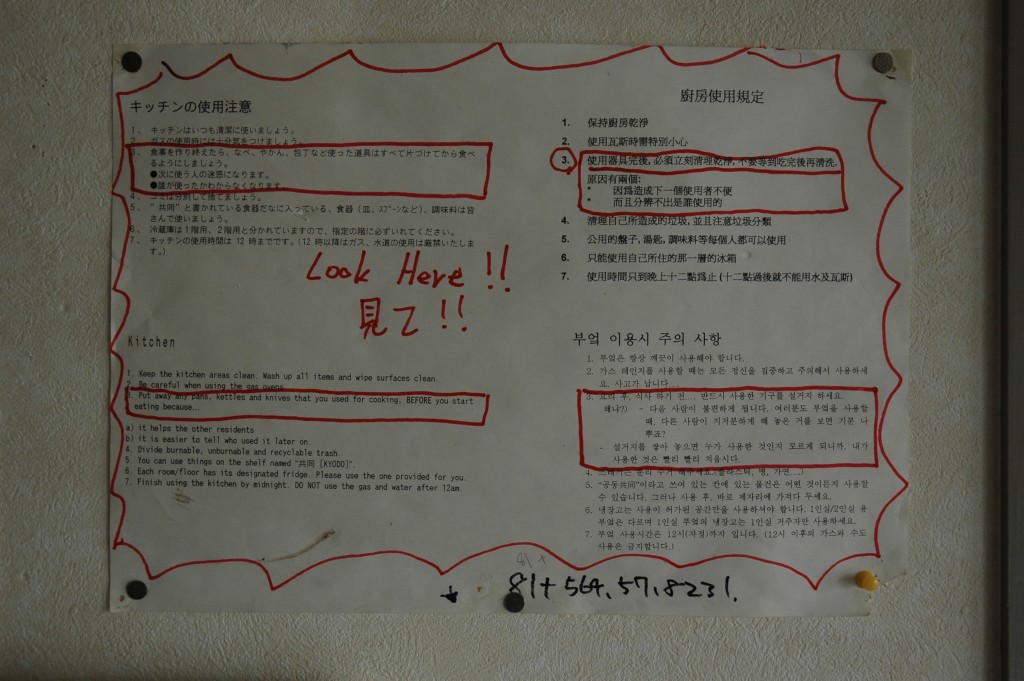 キッチンの使用注意
1、 キッチンはいつも清潔に使いましょう。
2、 ガスの使用時には十分気をつけましょう。
3、 食事を作り終えたら、なべ、やかん、包丁など使った道具はすべて片づけてから食べ
るようにしましょう。
●次に使う人の迷惑になります。
●誰が使ったかわからなくなります。
4、 ゴミは分別して捨てましょう。
5、 "共同" と書かれている食器だなに入っている、食器（皿、ｽﾌﾟｰﾝなど）、調味料は皆
さんで使いましょう。
6、 冷蔵庫は1階用、2階用と分かれていますので、指定の階に必ずいれてください。
7、 キッチンの使用時間は 12 時までです。（12 時以降はガス、水道の使用は厳禁いたしま
す。）
廚房使用規定
1. 保持廚房乾淨
2. 使用瓦斯時需特別小心
3. 使用器具完後, 必須立刻清理乾淨, 不要等到吃完後再清洗.
原因有兩個:
* 因爲造成下一個使用者不便
* 而且分辨不出是誰使用的
4. 清理自己所造成的垃圾, 並且注意垃圾分類
5. 公用的盤子, 湯匙, 調味料等每個人都可以使用
6. 只能使用自己所住的那一層的冰箱
7. 使用時間只到晚上十二點爲止 (十二點過後就不能用水及瓦斯)
Look Here !!
見て !!
Kitchen
1. Keep the kitchen areas clean. Wash up all items and wipe surfaces clean.
2. Be careful when using the gas ovens.
3. Put away any pans, kettles and knives that you used for cooking, BEFORE you start
eating because...
a) it helps the other residents
b) it is easier to tell who used it later on.
4. Divide burnable, unburnable and recyclable trash.
5. You can use things on the shelf named "共同 [KYODO]".
6. Each room/floor has its designated fridge. Please use the one provided for you.
7. Finish using the kitchen by midnight. DO NOT use the gas and water after 12am.
부엌 이용시 주의 사항
1. 부엌은 항상 깨끗이 사용해야 합니다.
2. 가스 레인지를 사용할 때는 모든 정신을 집중하고 주의해서 사용하세
요. 사고가 납니다....
3. 요리 후, 식사 하기 전.... 반드시 사용한 기구를 설거지 하세요.
왜냐?) - 다음 사람이 불편하게 됩니다. 여러분도 부엌을 사용할
때, 다른 사람이 지저분하게 해 놓은 거를 보면 기분 나
쁘죠?
- 설거지를 쌓아 놓으면 누가 사용한 것인지 모르게 되니까, 내가
사용한 것은 빨리 빨리 치웁시다.
4. 쓰레기는 분리 수거 해주세요.(플라스틱, 병, 가연....)
5. "공동共同"이라고 쓰여 있는 칸에 있는 물건은 어떤 것이든지 사용할
수 있습니다. 그러나 사용 후, 바로 제자리에 가져다 두세요.
6. 냉장고는 사용이 허가된 공간만을 사용하셔야 합니다. 1인실/2인실 용
부엌은 다르며 1인실 부엌의 냉장고는 1인실 거주자만 사용하세요.
7. 부엌 사용시간은 12시(자정)까지 입니다. (12시 이후의 가스와 수도
사용은 금지합니다.)
81 +
81+564.57.8231.